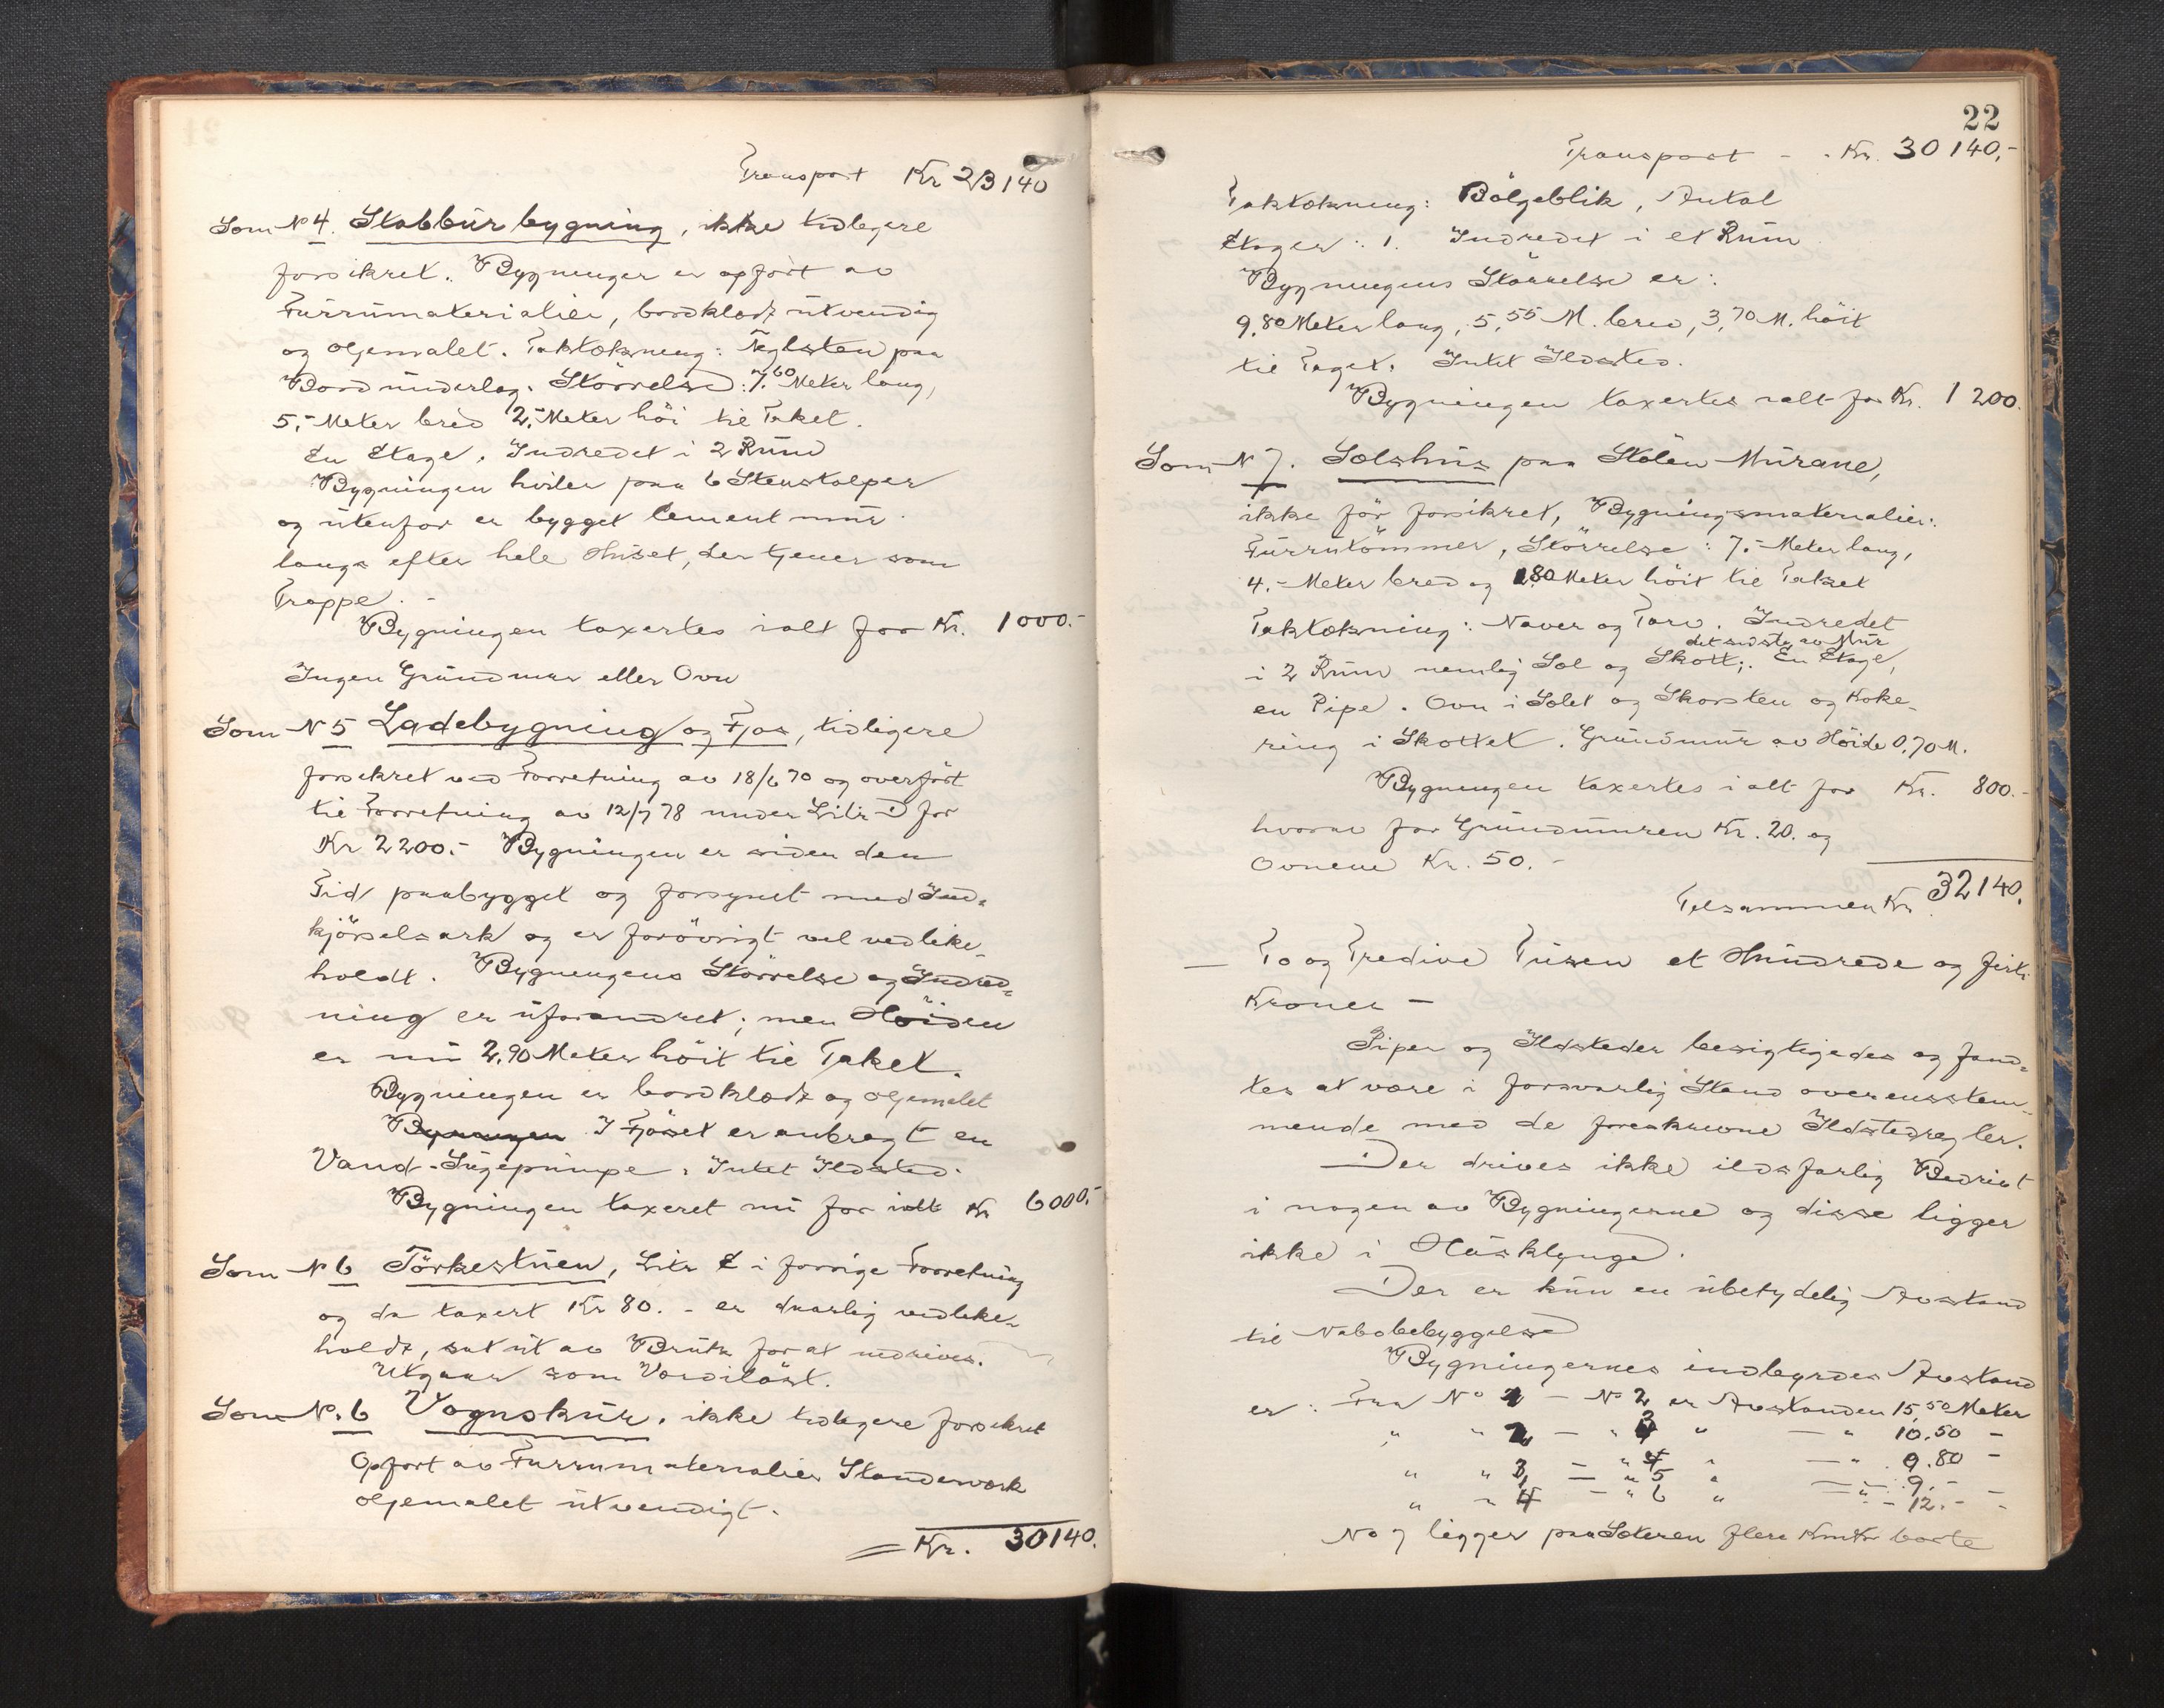 Transport Kr 23140
Som N 4. Stabburbygning, ikke tidligere
forsikret. Bygningen er opført av
Furrumaterialier, bordklædt utvendig
og oljemalet. Taktækning: Teglsten paa
Bordunderlag. Størrelse: 7.60 Meter lang,
5,- Meter bred 2,- Meter høi til Taket.
En Etage. Indredet i 2 Rum
Bygningen hviler paa 6 Stenstolper
og utenfor er bygget Cement mur
langs efter hele Huset, der tjener som
Trappe. -
Bygningen taxertes ialt for Kr. 1000.-
Ingen Grundmur eller Ovn
Som N 5 Ladebygning og Fjøs, tidligere
forsikret ved Forretning av 18/6 70 og overført
til Forretning av 12/7 78 under Litr D for
Kr 2200.- Bygningen er siden den
Tid paabygget og forsynet med Ind-
kjørselsark og er forøvrigt vel vedlike-
holdt. Bygningens Størrelse og Indred-
ning er uforandret; men Høiden
er nu 2,90 Meter høit til Taket.
Bygningen er bordklædt og oljemalet
Bygningen I Fjøset er anbragt en
Vand-Sugepumpe. Intet Ildsted.
Bygningen taxeret nu for ialt Kr 6000.-
Som N 6 Tørkestuen, Litr E i forrige Forretning
og da taxert Kr 80. - er daarlig vedlike-
holdt, sat ut av Bruk for at nedrives.
Utgaar som Værdiløst.
Som No. 6 Vognskur. ikke tidligere forsikret
Opført av Furrumaterialier Standerværk
oljemalet utvendigt.
Kr. 30140.
22
Transport - - Kr. 30140.-
Taktækning: Bølgeblik, Antal
Etager: 1. Indredet i et Rum
Bygningens Størrelse er:
9.80 Meter lang, 5,55 M. bred, 3,70 M. høit
til Taget. Intet Ildsted.
Bygningen taxertes ialt for Kr. 1200.
Som N 7. Selshus paa Stølen Murane,
ikke før forsikret, Bygningsmaterialier:
Furrutømmer, Størrelse: 7.- Meter lang,
4.- Meter bred og 1.80 Meter høit til Taket
Taktækning: Næver og Torv. Indredet
det sidste av Mur
i 2 Rum nemlig Sel og Skott;. En Etage,
en Pipe. Ovn i Selet og Skorsten og Koke-
ring i Skottet. Grundmur av Høide 0,70 M.
Bygningen taxertes i alt for Kr. 800.-
hvorav for Grundmuren Kr. 20. og
Ovnene Kr. 50.-
Tilsammen Kr. 32140.
— To og Tredive Tusen et Hundrede og firti
Kroner —
Piper og Ildsteder besigtigedes og fand-
tes at være i forsvarlig Stand overensstem-
mende med de foreskrevne Ildstedsregler.
Der drives ikke ildsfarlig Bedrivt
i nogen av Bygningerne og disse ligger
ikke i Husklynge.
Der er kun en ubetydelig Avstand
til Nabobebyggelse
Bygningernes indbyrdes Avstand
er: Fra No 1 - No 2 er Avstanden 15,50 Meter
" " 2 — " 3 " — " 10.50 -
" " 3 — " 4 " — " 9.80 -
" " — " 5 " — " 9.- -
" " 4 — " 6 " — " - 12.- -
No 7 ligger paa Sæteren flere Kmtr borte